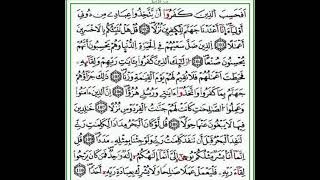 أَفَحَسِبَ ٱلَّذِينَ كَفَرُوٓا۟ أَن يَتَّخِذُوا۟ عِبَادِى مِن دُونِىٓ
أَوْلِيَآءَ إِنَّآ أَعْتَدْنَا جَهَنَّمَ لِلْكَٰفِرِينَ نُزُلًا ١٠٢ قُلْ هَلْ نُنَبِّئُكُم بِٱلْأَخْسَرِينَ
أَعْمَٰلًا ١٠٣ ٱلَّذِينَ ضَلَّ سَعْيُهُمْ فِى ٱلْحَيَوٰةِ ٱلدُّنْيَا وَهُمْ يَحْسَبُونَ أَنَّهُمْ
يُحْسِنُونَ صُنْعًا ١٠٤ أُو۟لَٰٓئِكَ ٱلَّذِينَ كَفَرُوا۟ بِـَٔايَٰتِ رَبِّهِمْ وَلِقَآئِهِۦ
فَحَبِطَتْ أَعْمَٰلُهُمْ فَلَا نُقِيمُ لَهُمْ يَوْمَ ٱلْقِيَٰمَةِ وَزْنًا ١٠٥ ذَٰلِكَ جَزَآؤُهُمْ
جَهَنَّمُ بِمَا كَفَرُوا۟ وَٱتَّخَذُوٓا۟ ءَايَٰتِى وَرُسُلِى هُزُوًا ١٠٦ إِنَّ ٱلَّذِينَ ءَامَنُوا۟
وَعَمِلُوا۟ ٱلصَّٰلِحَٰتِ كَانَتْ لَهُمْ جَنَّٰتُ ٱلْفِرْدَوْسِ نُزُلًا ١٠٧ خَٰلِدِينَ
فِيهَا لَا يَبْغُونَ عَنْهَا حِوَلًا ١٠٨ قُل لَّوْ كَانَ ٱلْبَحْرُ مِدَادًا لِّكَلِمَٰتِ رَبِّى
لَنَفِدَ ٱلْبَحْرُ قَبْلَ أَن تَنفَدَ كَلِمَٰتُ رَبِّى وَلَوْ جِئْنَا بِمِثْلِهِۦ مَدَدًا ١٠٩ قُلْ
إِنَّمَآ أَنَا۠ بَشَرٌ مِّثْلُكُمْ يُوحَىٰٓ إِلَىَّ أَنَّمَآ إِلَٰهُكُمْ إِلَٰهٌ وَٰحِدٌ فَمَن كَانَ يَرْجُوا۟
لِقَآءَ رَبِّهِۦ فَلْيَعْمَلْ عَمَلًا صَٰلِحًا وَلَا يُشْرِكْ بِعِبَادَةِ رَبِّهِۦٓ أَحَدًۢا ١١٠